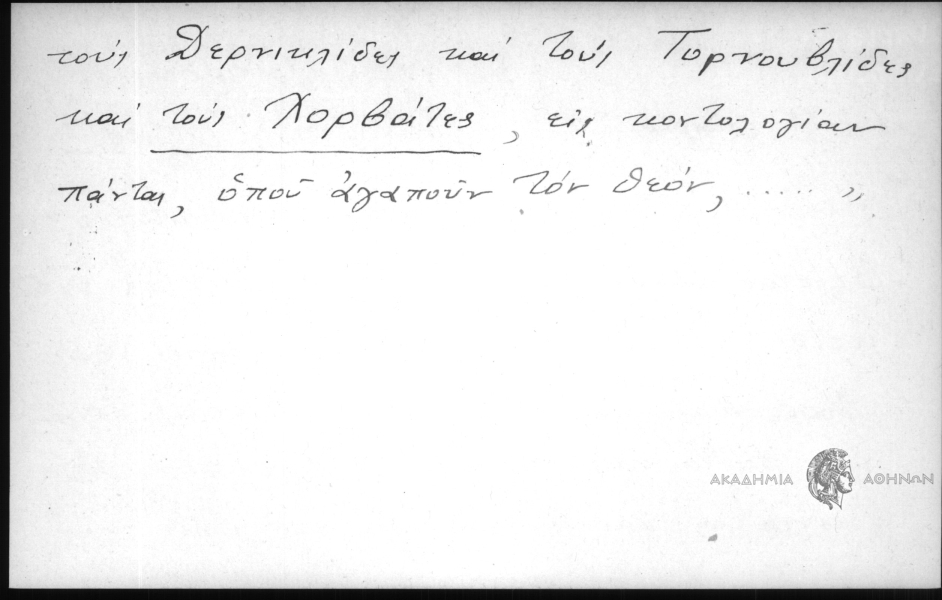 τούς Δερνικλίδες καί τούς Τορνουβλίδες
καί τούς Χορβάτες, εἰς κοντολογίαν
πάντας, ὁποῦ ἀγαποῦν τόν θεόν, ..... „
ΑΚΑΔΗΜΙΑ ΑΘΗΝΩΝ